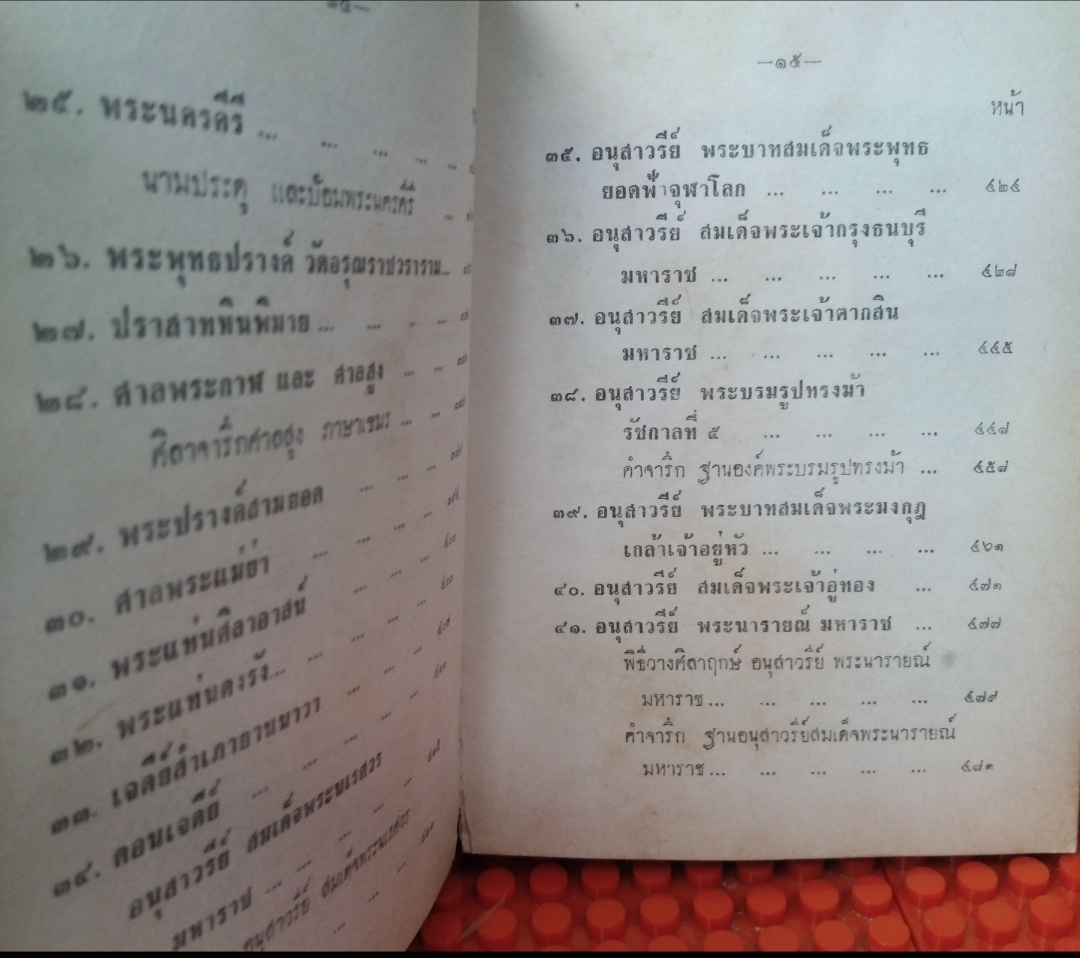 ๒๕. พระนครคีรี ... ... ... ... ...
นามประตู และป้อมพระนครคีรี ...
๒๖. พระพุทธปรางค์ วัดอรุณราชวราราม...
๒๗. ปราสาทหินพิมาย ... ... ... ...
๒๘. ศาลพระกาฬ และ ศาลสูง ... ...
ศิลาจารึกศาลสูง ภาษาเขมร ... ...
๒๙. พระปรางค์สามยอด ... ... ...
๓๐. ศาลพระแม่ย่า ... ... ... ...
๓๑. พระแท่นศิลาอาสน์ ... ... ...
๓๒. พระแท่นดงรัง... ... ... ...
๓๓. เจดีย์สำเภายานนาวา ... ... ...
๓๔. ดอนเจดีย์ ... ... ...
อนุสาวรีย์ สมเด็จพระนเรศวร
มหาราช ... ... ... ...
อนุสาวรีย์ สมเด็จพระนเรศวร
—๑๕—
หน้า
๓๕. อนุสาวรีย์ พระบาทสมเด็จพระพุทธ
ยอดฟ้าจุฬาโลก ... ... ... ... ๔๒๔
๓๖. อนุสาวรีย์ สมเด็จพระเจ้ากรุงธนบุรี
มหาราช ... ... ... ... ... ๔๒๘
๓๗. อนุสาวรีย์ สมเด็จพระเจ้าตากสิน
มหาราช ... ... ... ... ... ๔๔๕
๓๘. อนุสาวรีย์ พระบรมรูปทรงม้า
รัชกาลที่ ๕ ... ... ... ... ๔๔๘
คำจารึก ฐานองค์พระบรมรูปทรงม้า ... ๔๕๘
๓๙. อนุสาวรีย์ พระบาทสมเด็จพระมงกุฎ
เกล้าเจ้าอยู่หัว ... ... ... ... ๔๖๑
๔๐. อนุสาวรีย์ สมเด็จพระเจ้าอู่ทอง ... ๔๗๑
๔๑. อนุสาวรีย์ พระนารายณ์ มหาราช ... ๔๗๗
พิธีวางศิลาฤกษ์ อนุสาวรีย์ พระนารายณ์
มหาราช... ... ... ... ... ๔๗๙
คำจารึก ฐานอนุสาวรีย์สมเด็จพระนารายณ์
มหาราช... ... ... ... ... ๔๘๑